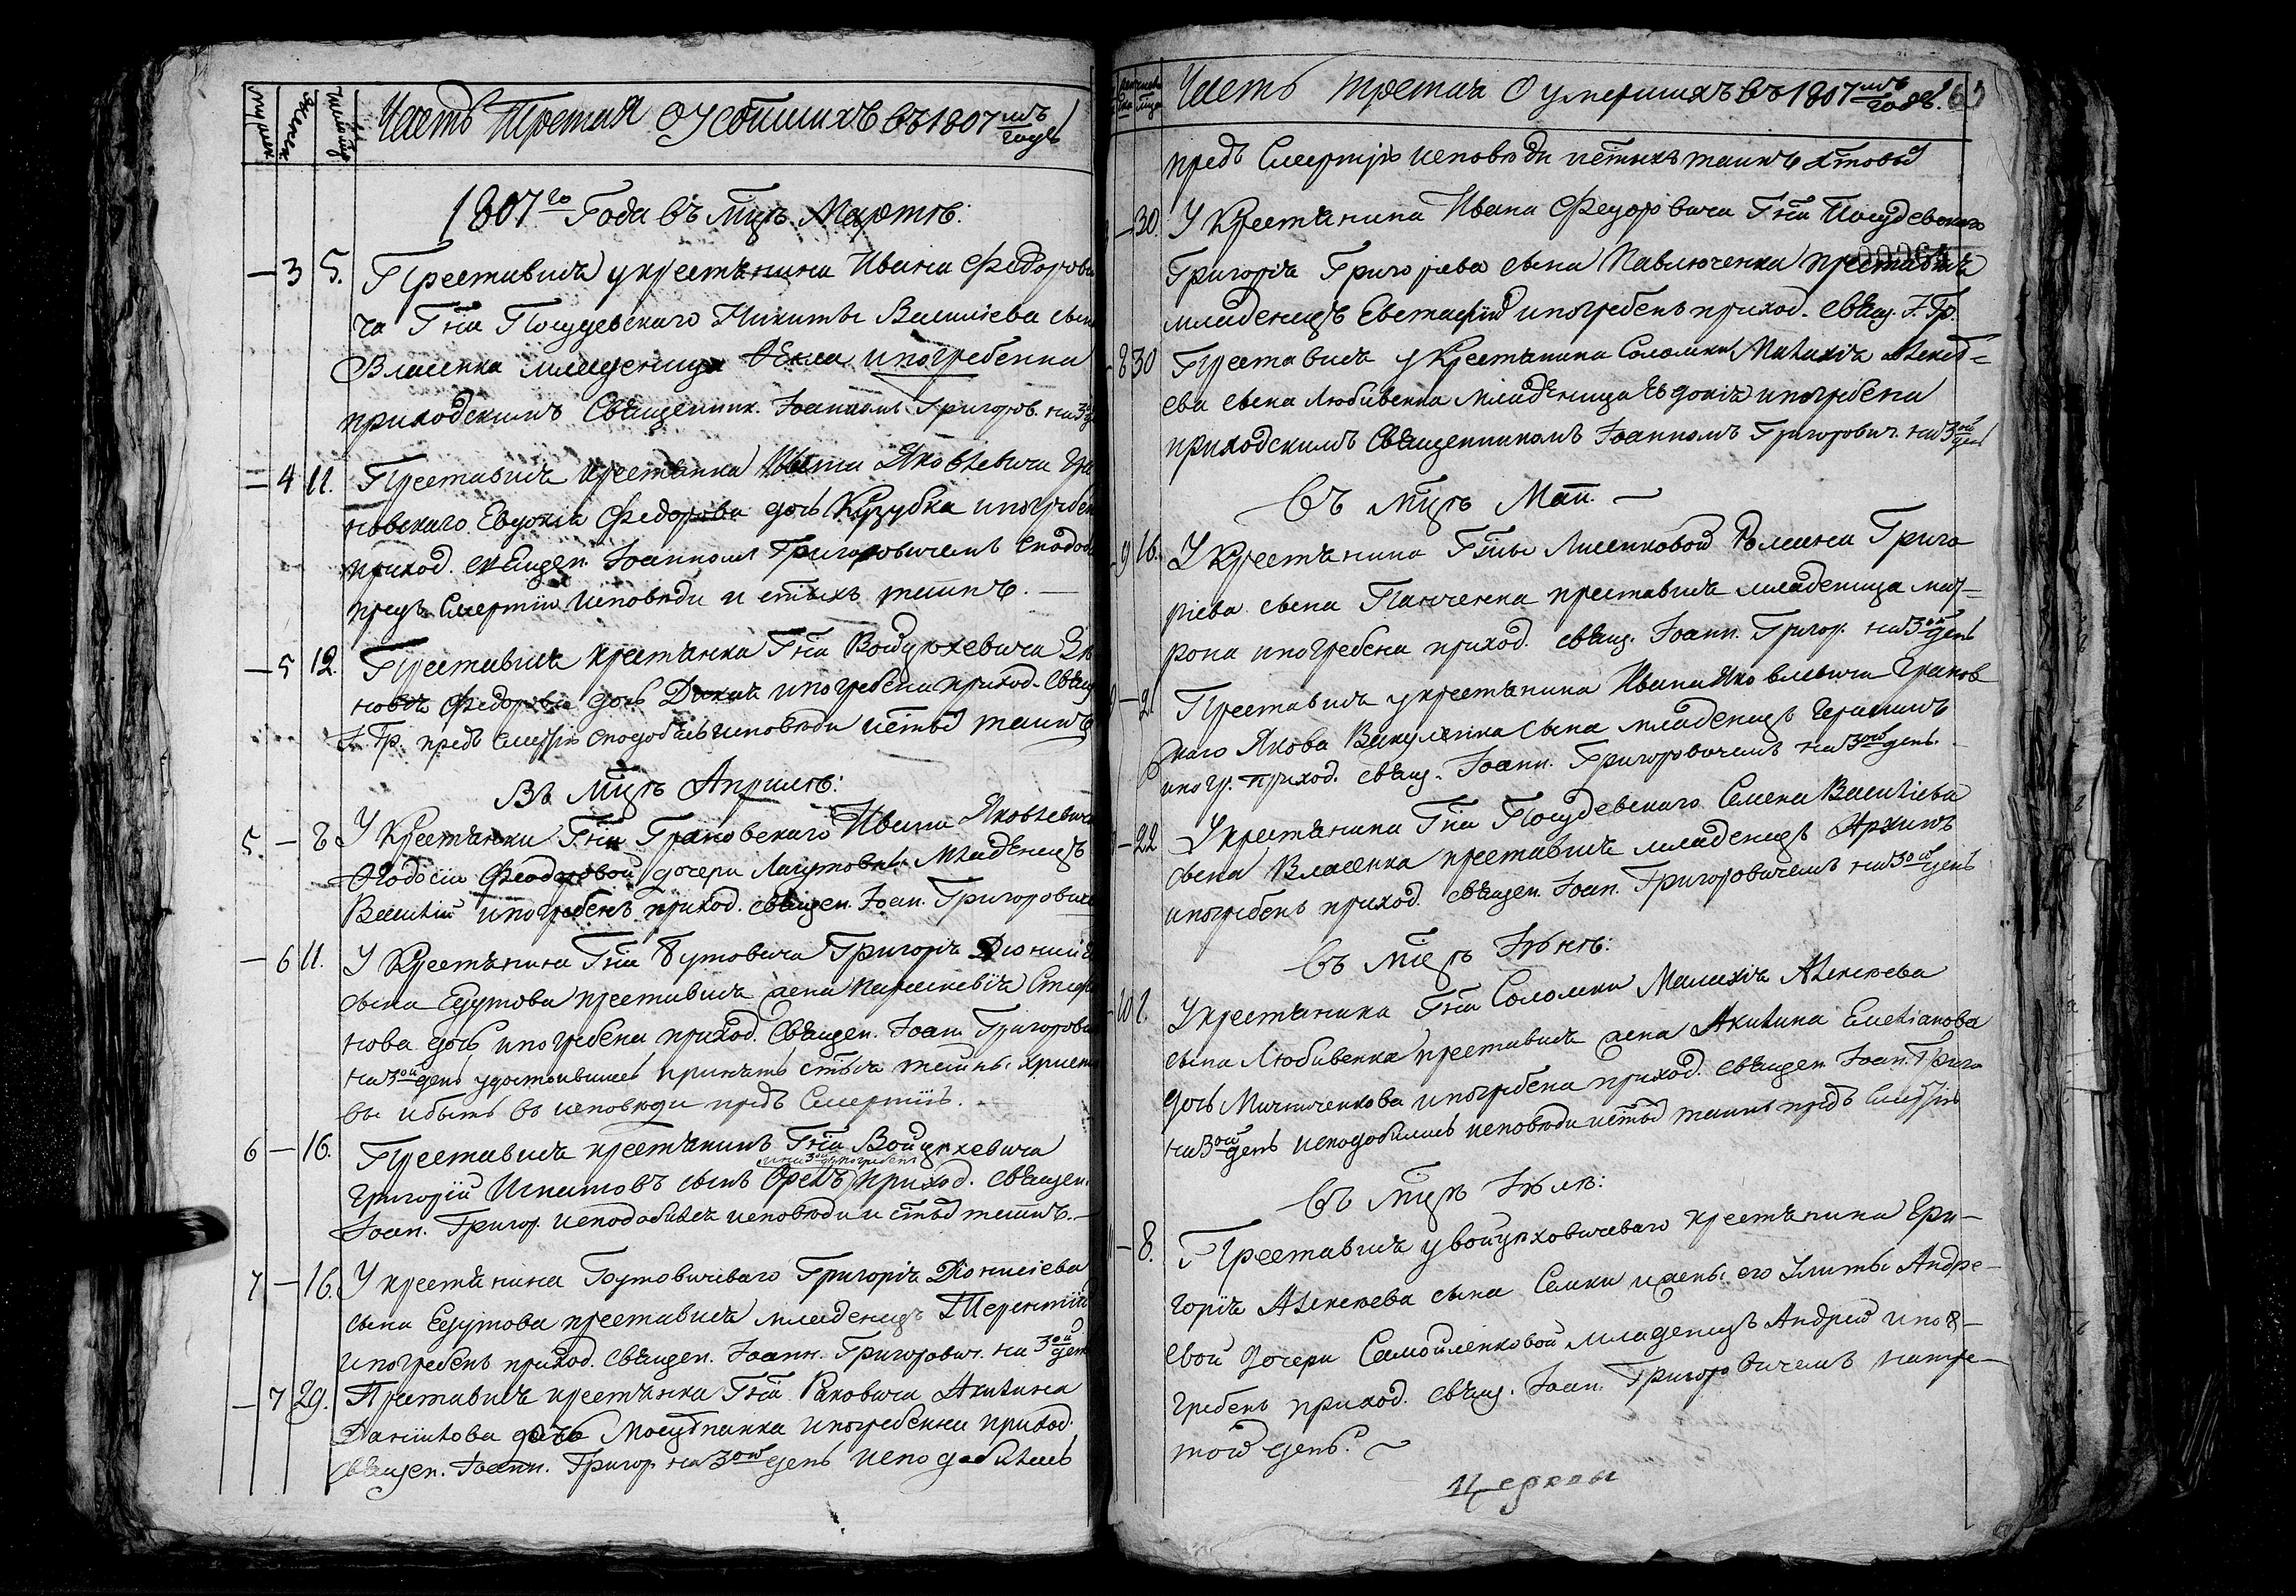 Часть Третія О Усопшихъ въ 1807 мъ годѣ
1807 го Года въ Мцѣ Мартѣ:
— 3 5. Преставися у крестянина Ивана Федорови
ча Гна Посудевскаго Никиты Василіева сына
Власенка младеница Фекла и погребенна
приходскимъ Священник. Іоанномъ Григоров. на 3
— 4 11. Преставися крестянка Ивана Яковлевича Гра
новскаго Евдокія Федорова дочь Кузубка и погребен
приход. священ. Іоанномъ Григоровичемъ сподоби
предъ Смертію исповѣди и стыхъ таинъ. —
— 5 12. Преставися крестянка Гна Войцѣхевича
Федорова дочь и погребена приход. Свящ
І. Гр. предъ смертію сподобись исповѣди и стыхъ таинъ
Въ Мцѣ Априлѣ:
5. — 8 У Крестянки Гна Грановскаго Ивана Яковлевича
Феодосіи Феодоровой дочери Младенецъ
Василій и погребенъ приход. священ. Іоан. Григорович
— 6 11. У Крестянина Гна Бутовича Григорія Діонисіе
сына Едутова преставися жена Параскевія Стефа
нова дочь и погребена приход. Священ. Іоан. Григорови
на 3 ой день удостоившись принять стыя тайны Христо
вы и быть въ исповѣди предъ Смертію.
6 — 16. Преставися крестянинъ Гна Войцѣхевича
и на 3 ой д. погребенъ
Григорій Игнатовъ сынъ Орелъ приход. Священ.
Іоан. Григор. исподобился исповѣди и стых таинъ. —
7 — 16. У крестянина Бутовичеваго Григорія Діонисіева
сына Едутова преставися младенецъ Терентій
и погребенъ приход. Священ. Іоанн. Григорович. на 3 ой день
— 7 29. Преставися крестянка Гна Раковича Акилина
Даніилова дочь и погребенна приход.
Священ. Іоанн. Григор на 3 ой день исподобилась
Часть третія О умершихъ въ 1807 мъ годѣ.
предъ Смертію исповѣди и стыхъ таинъ хтовых
— 30. У Крестянина Ивана Федоровича Гна Посудевскаго
Григорія Григоріева сына Павлюченка преставися
младенецъ Евстафій и погребенъ приход. свящ. І. Гр.
8 30 Преставися у Крестянина Соломки Малахія Алекс=
ева сына Любивенка младеница Евдокія и погребена
приходскимъ Священникомъ Іоанномъ Григорович. на 3 ой день
Въ Мцѣ Маи. —
9 16. У Крестянина Гжы Лисенковой Романа Григо
ріева сына Панченка преставися младеница мат=
рона и погребена приход. свящ. Іоанн. Григор. на 3 ой день
— 21 Преставися у крестянина Ивана Яковлевича Гранов
скаго Якова Викуленка сына младенецъ Герасимъ
и погр. приход. свящ. Іоанн. Григоровичемъ на 3 ой день.
— 22 У крестянина Гна Посудевскаго Семена Василіева
сына Власенка преставися младенецъ Архипъ
и погребенъ приход. священ. Іоан. Григоровичемъ на 3 ой день
Въ мцѣ Іюнѣ:
10 2. У крестянина Гна Соломки Малахія Алексѣева
сына Любивенка преставися жена Акилина Емелианова
дочь и погребена приход. священ. Іоан. Григо
на 3 ой день исподобилась исповѣди и стых таинъ предъ смертію
Въ Мцѣ Іюлѣ:
— 8. Преставися у Войцѣховичеваго крестянина Гри—
горія Алексѣева сына Самки и жены его Улиты Андре—
евой дочери Самойленковой младенецъ Андрей и по—
гребенъ приход. свящ. Іоан. Григоровичемъ на тре—
той день.
Церкви